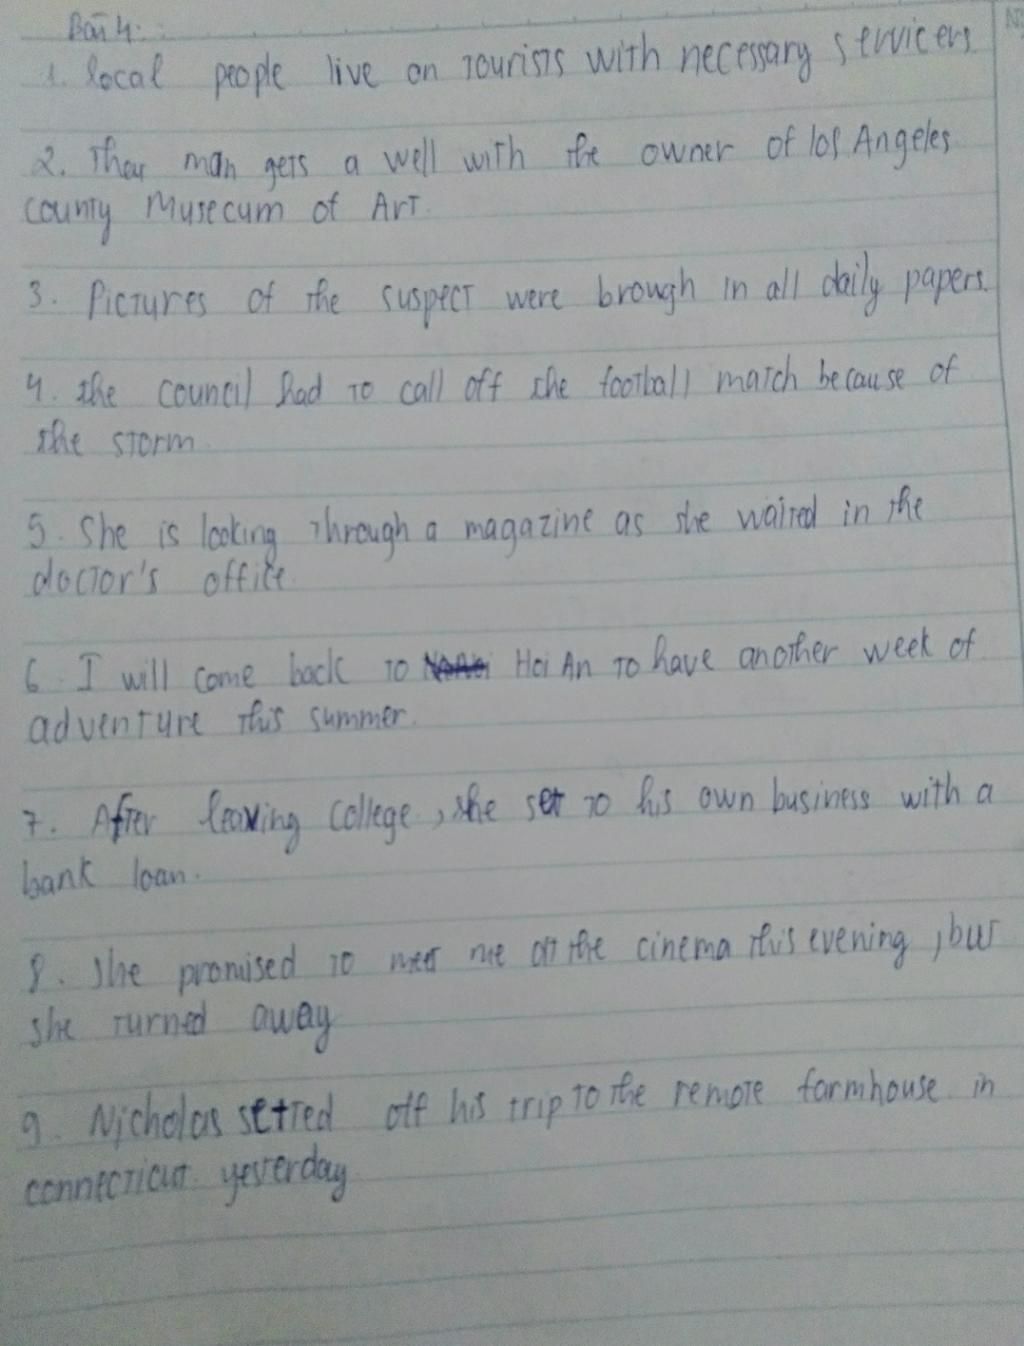 Bài 4:
1. local people live on tourists with necessary servicers
2. They man gets a well with the owner of los Angeles
county Musecum of Art.
3. Pictures of the suspect were brough in all daily papers.
4. the council had to call off the football match because of
the storm.
5. She is looking through a magazine as she waited in the
doctor's office
6. I will come back to Hoi An to have another week of
adventure this summer.
7. After leaving college, she set to his own business with a
bank loan.
8. She promised to meet me at the cinema this evening, but
she turned away
9. Nicholas setted off his trip to the remote farmhouse in
connecticut yesterday